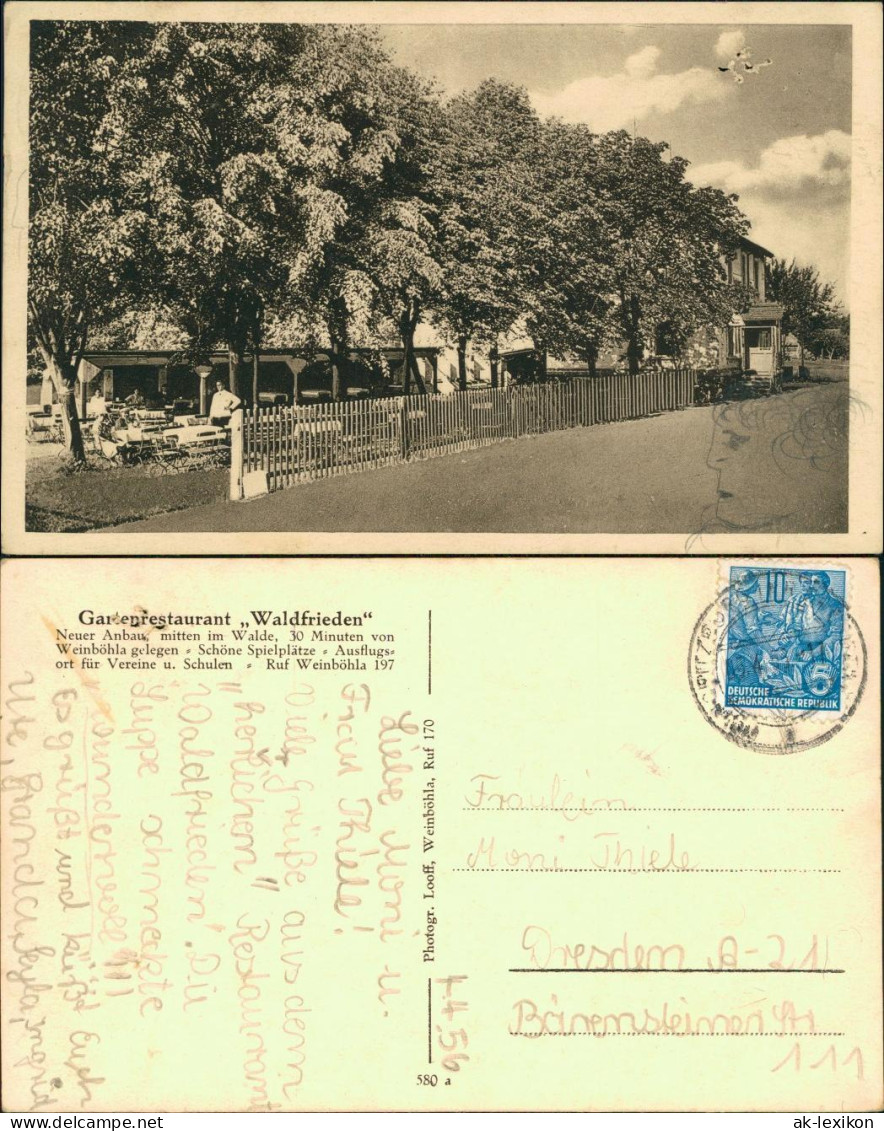 Gartenrestaurant „Waldfrieden"
Neuer Anbau, mitten im Walde, 30 Minuten von
Weinböhla gelegen - Schöne Spielplätze - Ausflugs-
ort für Vereine u. Schulen - Ruf Weinböhla 197
Liebe Moni u.
Frau Thiele!
Viele Grüße aus dem
"herlichen" Restaurant
Waldfrieden. Die
Suppe schmeckte
wundervoll!!!
Es grüßt und küßt Euch
Ute,
Ingrid
4.4.56
Photogr. Looff, Weinböhla, Ruf 170
580 a
10
DEUTSCHE
DEMOKRATISCHE REPUBLIK
5
Fräulein
Moni Thiele
Dresden A-21
Bärensteiner Str
111
© ak-lexikon
ak-lexikon.com